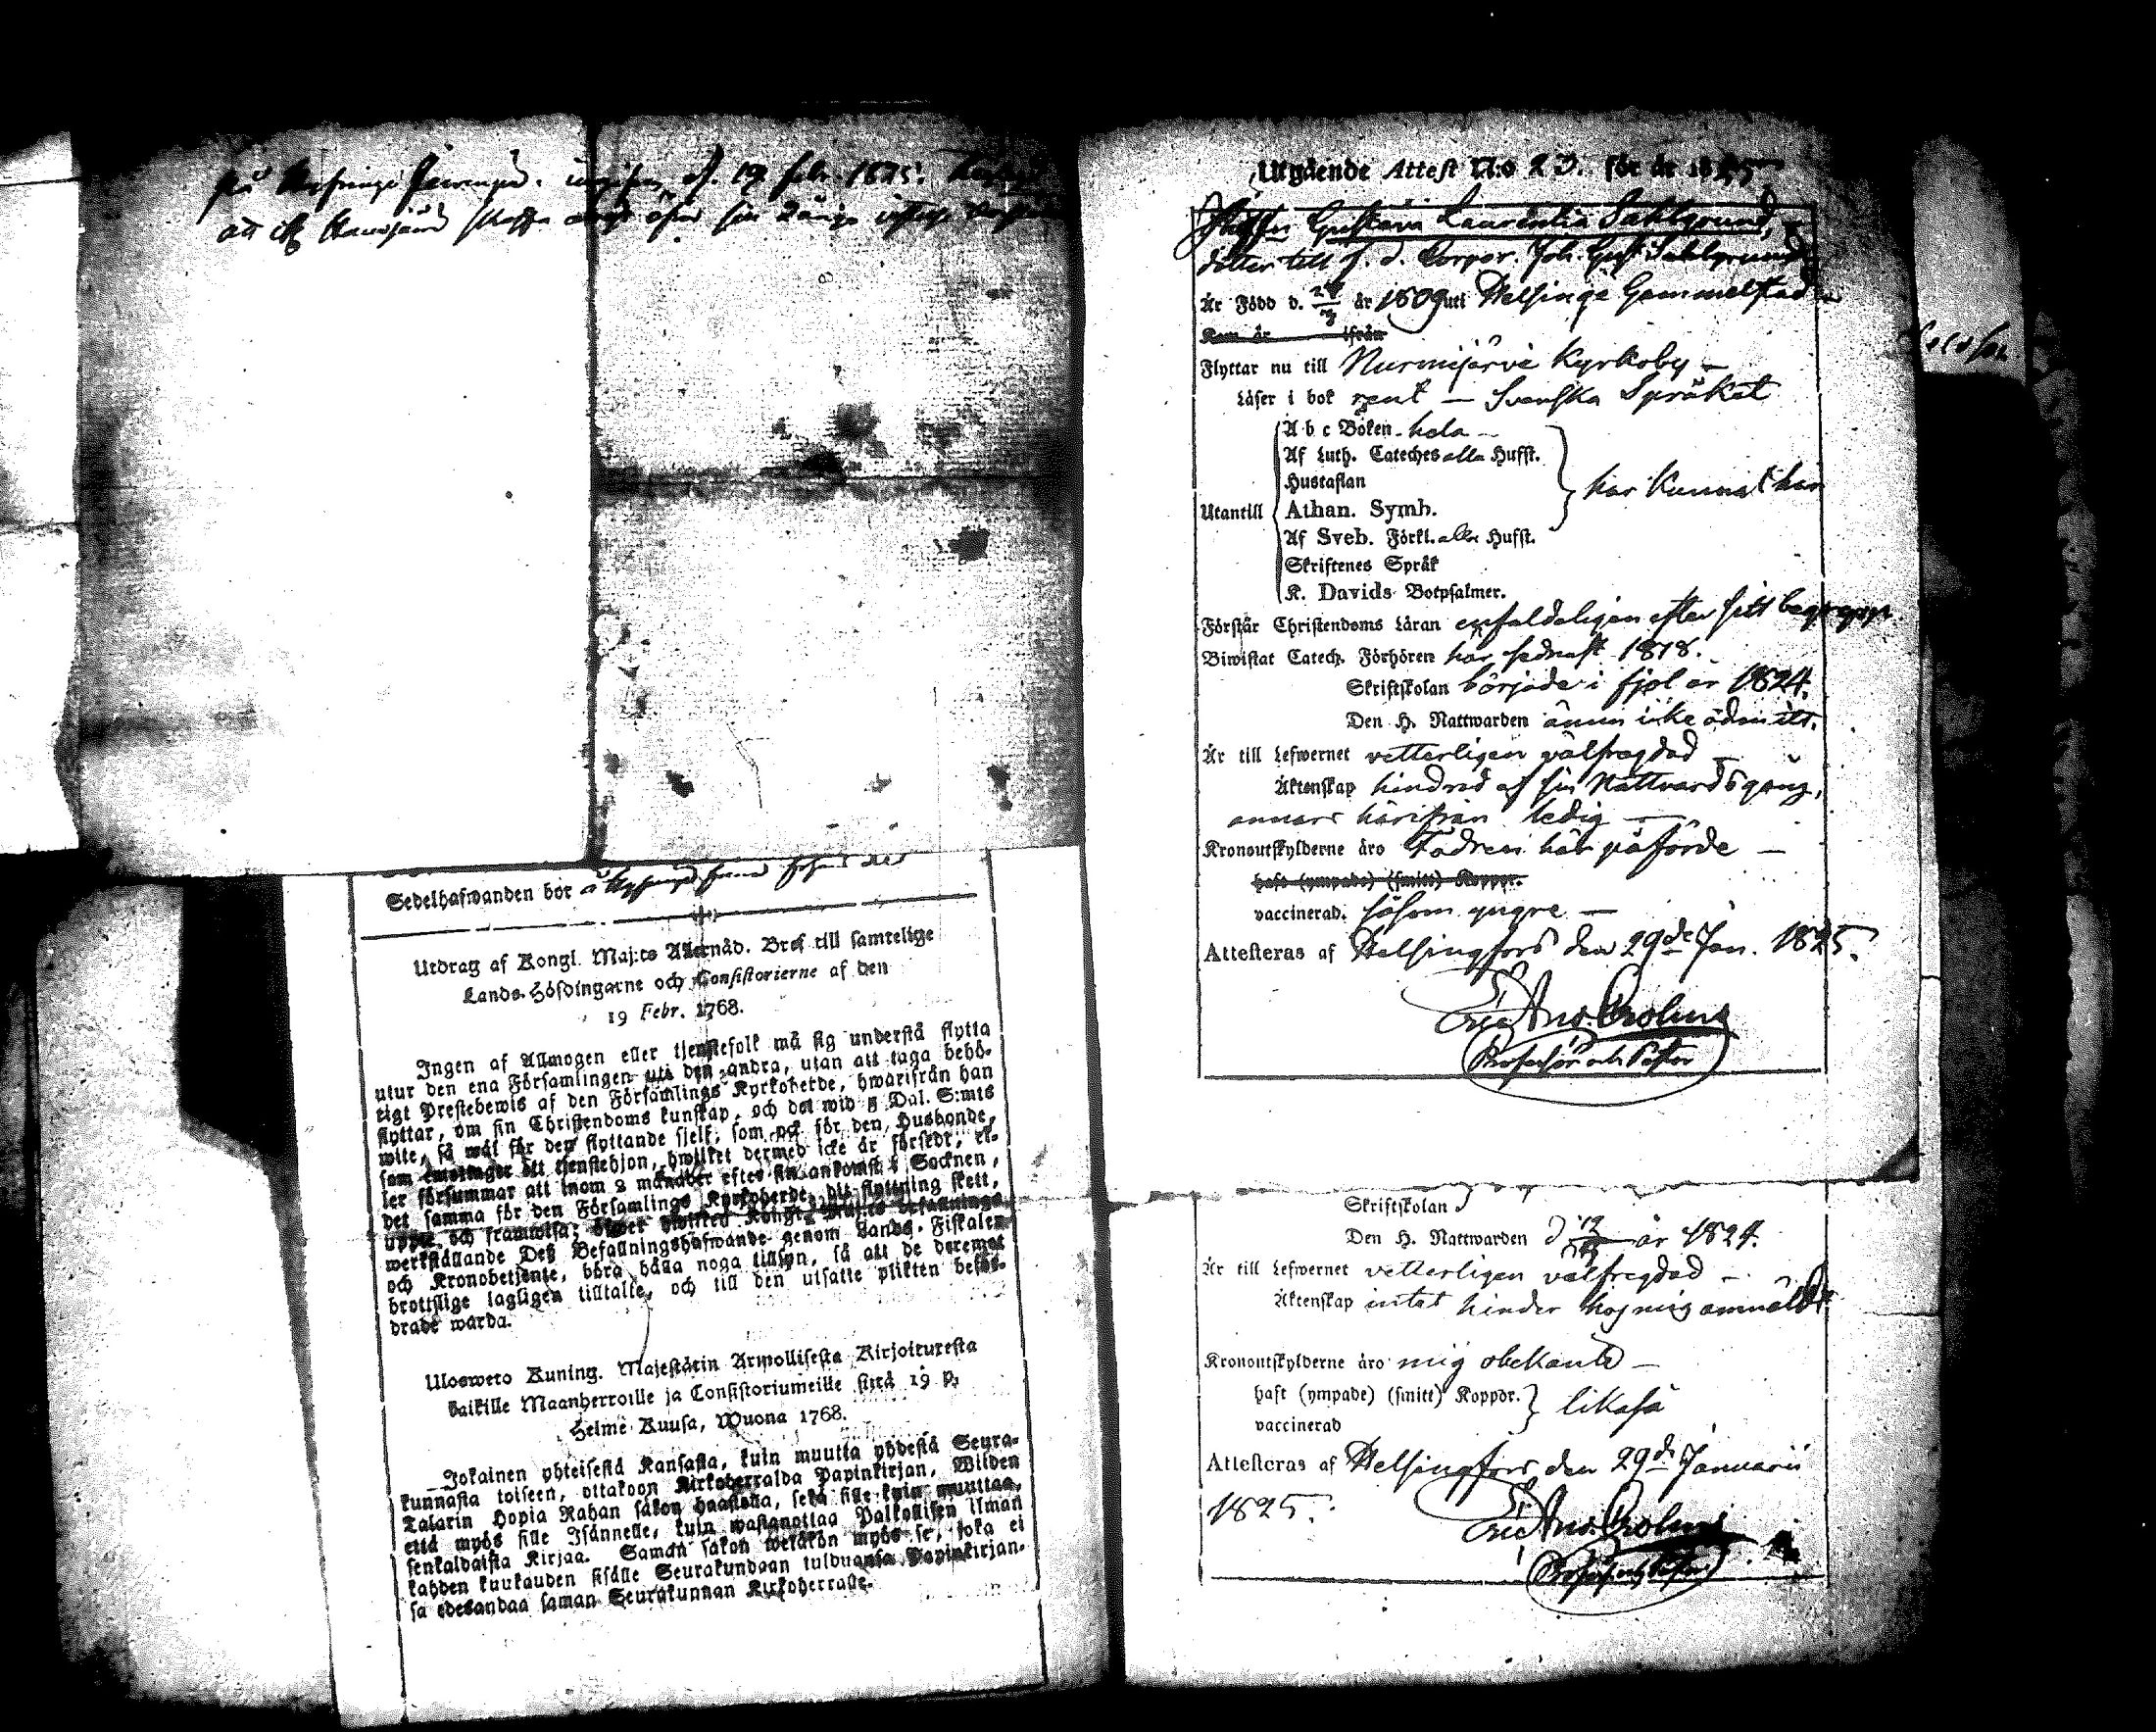 d. 17 febr. 1825.
att
Sedelhafwanden bor å
Utdrag af Kongl. Maj:ts Allernåd. Bref till samtelige
Lands-Höfdingarne och Consistorierne af den
19 Febr. 1768.
Ingen af Allmogen eller tjenstefolk må sig understå flytta
utur den ena Församlingen uti den andra, utan att taga behö-
rigt Prestebewis af den Församlings Kyrkoherde, hwarifrån han
flyttar, om sin Christendoms kunskap, och det wid 5 Dal. S:mts
wite, så wäl för den flyttande sjelf, som ock för den Husbonde,
som emottager ett tjenstehjon, hwilket dermed icke är försedt, el-
ler försummar att inom 2 månader efter sin ankomst i Socknen,
det samma för den Församlings Kyrkoherde, dit flyttning skett,
upte och framwisa; öfwer hwilket Kongl. Maj:ts Befallnings
werkställande Deß Befallningshafwande genom Lands-Fiskaler
och Kronobetjente, böra hålla noga tillsyn, så att de deremot
brottslige lagligen tilltalte, och till den utsatte plikten beför-
drade warda.
Ulosweto Kuning. Majestätin Armollisesta Kirjoituresta
kaikille Maanherroille ja Consistoriumeille siitä 19 p.
Helme Kuusa, Wuona 1768.
Jokainen yhteisestä Kansasta, kuin muutta yhdestä Seura-
kunnasta toiseen, ottakoon Kirkoherralda Papinkirjan, Wiiden
Talarin Hopia Rahan sakon haastolla, sekä sille kuin muuttaa,
että myös sille Isännelle, kuin wastanottaa Palkollisen ilman
senkaldaista Kirjaa. Saman sakon wetäkön myös se, joka ei
kahden kuukauden sisälle Seurakundaan tulduansa Papinkirjan-
sa edesandaa saman Seurakunnan Kirkoherralle.
Utgående Attest N:o 23. för år 1825
Gustava Laurentia Sahlgrund,
dotter till f. d. Corpor. Joh. Gust. Sahlgrund
Är Född d. år 1809 uti Helsinge Gammelstad
Kom år ifrån
Flyttar nu till Nurmijärvi Kyrkoby –
Läser i bok rent – Svenska Språket
A b c Boken hela –
Af Luth. Cateches alla Hufst.
Hustaflan
har kunnat här
Utantill Athan. Symb.
Af Sveb. Förkl. alla Hufst.
Skriftenes Språk
K. Davids Botpsalmer.
Förstår Christendoms Läran enfaldeligen efter sitt begrepp
Biwistat Catech. Förhören har sednast 1818.
Skriftskolan började i fjol år 1824.
Den H. Nattwarden ännu icke
Är till Lefwernet vetterligen välfregdad –
Äktenskap hindrad af sin Nattvardsgång,
annars härifrån ledig –
Kronoutskylderne äro Fadren här påförde –
haft (ympade) (smitt) Koppor.
vaccinerad. såsom yngre –
Attesteras af Helsingfors den 29de Jan. 1825.
Professor och Pastor
Skriftskolan
Den H. Nattwarden d. år 1824.
Är till Lefwernet vetterligen välfregdad –
Äktenskap intet hinder hos mig anmäldt.
Kronoutskylderne äro mig obekante –
haft (ympade) (smitt) Koppor. likaså
vaccinerad
Attesteras af Helsingfors den 29de Januarii
1825.